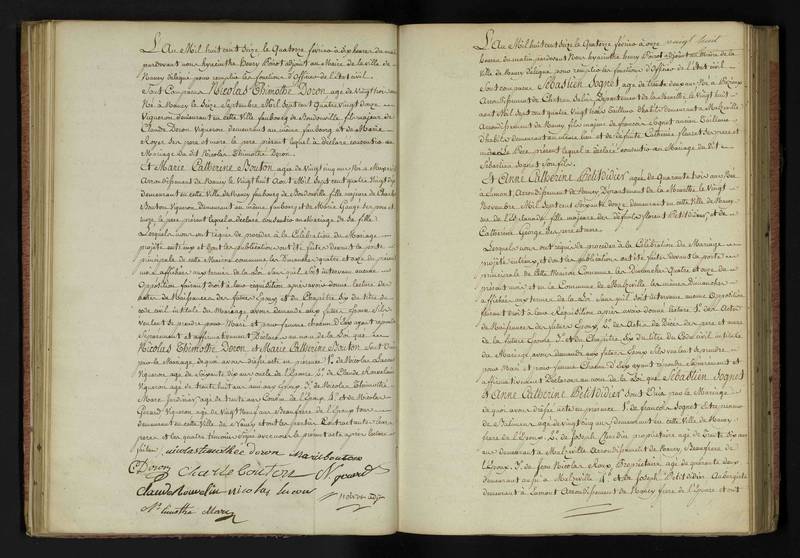 L'An Mil huit cent Seize le Quatorze février à dix heures du matin
pardevant nous hyacinthe henry Poirot adjoint au Maire de la ville de
Nancy délégué pour remplir les fonctions d'officier de l'Etat civil
Sont Comparus Nicolas Thimothé Doron agé de Vingt trois ans
Né à Nancy le Seize Septembre Mil Sept cent Quatre vingt douze
Vigneron demeurant en cette Ville faubourg de Boudonville fils majeur de
Claude Doron Vigneron demeurant au même faubourg et de Marie
Royer Ses pere et mere, le pere présent lequel a déclaré consentir au
Mariage du dit Nicolas Thimothé Doron
Et Marie Catherine Bouton agée de Vingt cinq ans Née à
Arrondissement de Nancy le Vingt huit Août Mil Sept cent quatre vingt dix
demeurant en cette Ville de Nancy faubourg de Boudonville fille majeure de Charles
Bouton Vigneron demeurant au même faubourg et de Marie Gaugé Ses pere et
mere le pere présent lequel a déclaré consentir au mariage de Sa fille
Lesquels nous ont requis de procéder à la Célébration du Mariage
projeté entr'eux et dont les publications ont été faites devant la porte
principale de cette Maison commune les Dimanches quatre et onze du présent
mois affichées aux termes de la Loi Sans qu'il Soit intervenu aucune
Opposition faisant droit à leur requisition après avoir donné lecture des
actes de Naissances des futurs Epoux et du Chapitre Six du titre du
code civil intitulé du Mariage, avons demandé aux futurs Epoux S'ils
veulent se prendre pour Mari et pour femme chacun d'Eux ayant répondu
Séparement et affirmativement Déclarons au nom de la Loi que
Nicolas Thimothé Doron et Marie Catherine Bouton Sont Unis
par le Mariage, de quoi avons dressé acte en présence 1° de Nicolas
Vigneron agé de Soixante dix ans oncle de l'Epouse 2° de Claude
Vigneron agé de trente huit ans ami aux Epoux 3° de Nicolas Thimothé
Marc Jardinier agé de trente ans Cousin de l'Epoux 4° et de Nicolas
Gerard Vigneron agé de Vingt Neuf ans Beau frere de l'Epoux tous
demeurant en cette Ville de Nancy et ont les parties Contractantes
peres et les quatre témoins Signé avec nous le présent acte après lecture
faite
nicolas timothée doron Marie bouton
C Doron Charle bouton N gerard
nicolas
N timothé Marc
L'An Mil huit cent Seize le Quatorze février à onze
heures du matin pardevant Nous hyacinthe henry Poirot adjoint au Maire de la
Ville de Nancy délégué pour remplir les fonctions d'officier de l'Etat civil
Sont comparus Sébastien Sognet agé de trente deux ans Né à
Arrondissement de Chateau Salins Département de la Meurthe le Vingt huit
Mil Sept cent quatre Vingt trois Tailleur d'habits demeurant à Malzéville
Arrondissement de Nancy fils majeur de françois Sognet ancien Tailleur
d'habits demeurant au même lieu et de défunte Catherine Ses pere et
mere le Pere présent lequel a déclaré consentir au Mariage du dit
Sébastien Sognet Son fils
Et Anne Catherine Petitdidier agée de Quarante trois ans Née
à Lemont, Arrondissement de Nancy Département de la Meurthe le Vingt
Novembre Mil Sept cent Soixante douze demeurant en cette Ville de Nancy
rue de fille majeure des défunts florent Petitdidier, et de
Catherine George Ses pere et mere
Lesquels nous ont requis de procéder à la Célébration du Mariage
projeté entr'eux, et dont les publications ont été faites devant la porte
principale de cette Maison Commune les Dimanches Quatre et onze du
présent mois et en la Commune de Malzéville les mêmes Dimanches
affichées aux termes de la Loi Sans qu'il Soit intervenu aucune Opposition
faisant droit à leur Requisition après avoir donné lecture 1° des Actes
de Naissances des futurs Epoux, 2° des Actes de Décès des pere et mere
de la future Epouse 3° et du Chapitre Six du titre du Code civil intitulé
du Mariage avons demandé aux futurs Epoux S'ils veulent se prendre
pour Mari et pour femme Chacun d'Eux ayant répondu Séparement et
affirmativement Déclarons au nom de la Loi que Sébastien Sognet
et Anne Catherine Petitdidier Sont Unis par le Mariage
de quoi avons dressé acte en présence 1° de françois Sognet
agé de vingt cinq ans demeurant en cette Ville de Nancy
frere de l'Epoux 2° de Joseph Claudin propriétaire agé de trente Six ans
demeurant à Malzéville Arrondissement de Nancy, Beau frere de
l'Epoux 3° de Jean Nicolas Roux Propriétaire agé de quarante deux
demeurant aussi à Malzéville 4° et de Joseph Petitdidier Aubergiste
demeurant à Lemont Arrondissement de Nancy frere de l'Epouse et ont